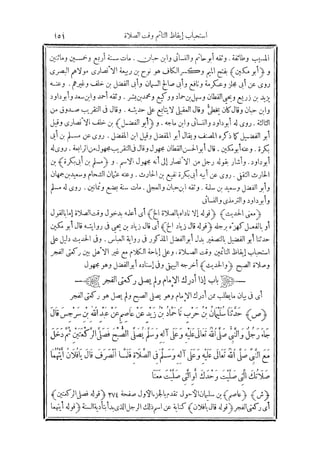 استحباب إيقاظ النائم وقت الصلاة (١٥١)
المسيب وطائفة. وثقه أبو حاتم والنسائى وابن حبان. مات سنة أربع وخمسين ومائتين
و (أبو مكين) بفتح الميم وكسر الكاف هو نوح بن ربيعة الأنصارى مولاهم البصرى
روى عن أبى مجلز وعكرمة ونافع وأبى صالح السمان وأبى الفضل بن خلف وغيرهم. وعنه
يزيد بن زريع ويحيى القطان وسهل بن حماد ووكيع ومحمد بن بشر. وثقه أحمد وابن سعد وأبو داود
وابن حبان وقال كان يخطئ وقال العقيلى لا يتابع على حديثه. وقال فى التقريب صدوق من
الثالثة. روى له أبو داود والنسائى وابن ماجه. و (أبو الفضل) بن خلف الأنصارى وقيل
أبو الفضيل كما ذكره المصنف ويقال أبو المفضل وقيل ابن المفضل. روى عن مسلم بن أبى
بكرة. وعنه أبو مكين. قال أبو الحسن القطان مجهول وقال فى التقريب مجهول من الرابعة. روى له
أبو داود. وأشار بقوله رجل من الأنصار إلى أنه مجهول الاسم. و (مسلم بن أبى بكرة) بن
الحارث الثقفى. روى عن أبيه أبى بكرة نفيع بن الحارث. وعنه عثمان الشحام وسعيد بن جمهان
وأبو الفضل وسعيد بن سلمة. وثقه ابن حبان والعجلى. مات سنة بضع وثمانين. روى له مسلم
وأبو داود والترمذى والنسائى
(معنى الحديث) (قوله إلا ناداه بالصلاة الخ) أى أعلمه بدخول وقت الصلاة إما بالقول
أو بالفعل كهزه برجله (قوله قال زياد الخ) أى قال زياد بن يحيى فى روايته قال أبو مكين
حدثنا أبو الفضيل بالتصغير بدل أبو الفضل المذكور فى رواية العباس. وفى الحديث دليل على
استحباب إيقاظ النائمين وقت الصلاة. وعلى إباحة الكلام مع غير الأهل بين ركعتى الفجر
وصلاة الصبح (والحديث) أخرجه البيهقى وفى إسناده أبو الفضل وهو مجهول
باب إذا أدرك الإمام ولم يصلى ركعتى الفجر
أى فى بيان ما يطلب ممن أدرك الإمام وهو يصلى الصبح ولم يصل هو ركعتى الفجر
(ص) حَدَّثَنَا سُلَيْمَانُ بْنُ حَرْبٍ نَا حَمَّادُ بْنُ زَيْدٍ عَنْ عَاصِمٍ عَنْ عَبْدِ اللهِ بْنِ سَرْجِسَ قَالَ
جَاءَ رَجُلٌ وَالنَّبِيُّ صَلَّى اللهُ تَعَالَى عَلَيْهِ وَعَلَى آلِهِ وَسَلَّمَ يُصَلِّي الصُّبْحَ فَصَلَّى الرَّكْعَتَيْنِ ثُمَّ دَخَلَ
مَعَ النَّبِيِّ صَلَّى اللهُ تَعَالَى عَلَيْهِ وَعَلَى آلِهِ وَسَلَّمَ فِي الصَّلَاةِ فَلَمَّا انْصَرَفَ قَالَ يَا فُلَانُ أَيَّتُهُمَا
صَلَاتُكَ الَّتِي صَلَّيْتَ وَحْدَكَ أَوِ الَّتِي صَلَّيْتَ مَعَنَا
(ش) (عاصم) بن سليمان الأحول تقدم بالجزء الأول صفحة ٢٧٤ (قوله فصلى الركعتين)
أى ركعتى الفجر (قوله قال يا فلان) كناية عن اسم ذلك الرجل الذى بدأ بتأدية السنة (قوله أيتهما